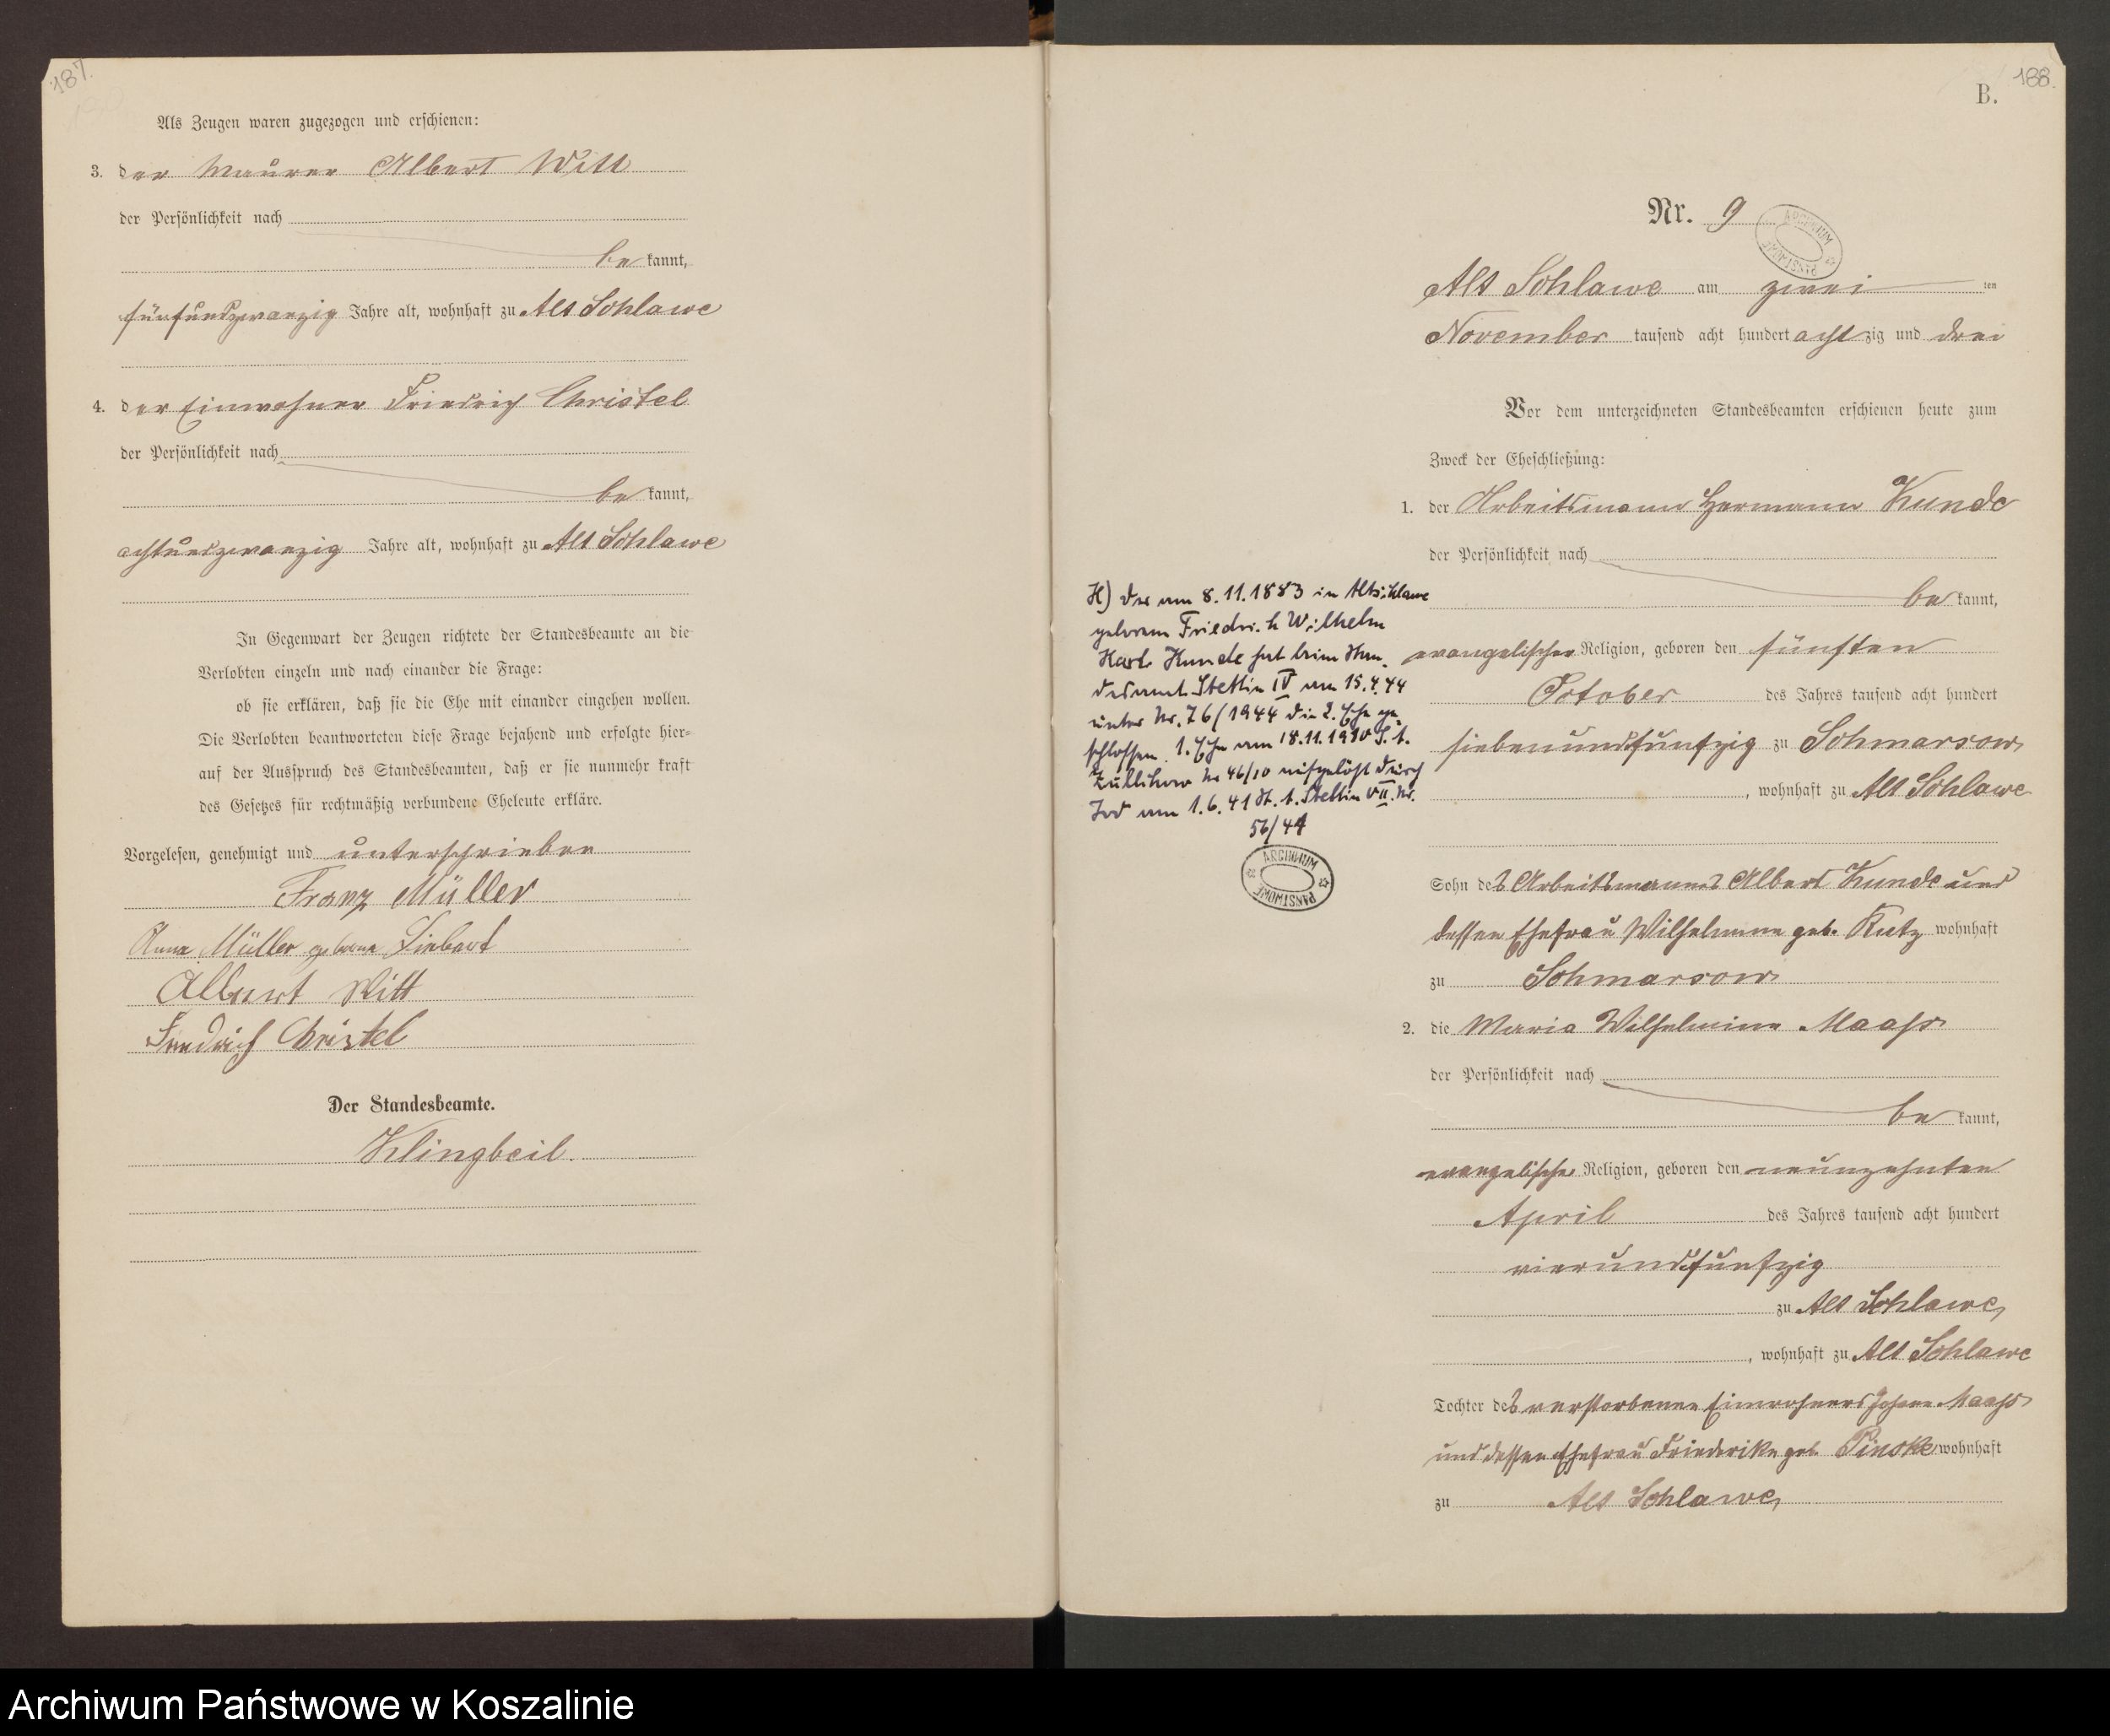 187.
Als Zeugen waren zugezogen und erschienen:
3. der Maurer Albert Witt
der Persönlichkeit nach
be kannt,
fünfundzwanzig Jahre alt, wohnhaft zu Alt Schlawe
4. der Einwohner Friedrich Christel
der Persönlichkeit nach
be kannt,
achtundzwanzig Jahre alt, wohnhaft zu Alt Schlawe
In Gegenwart der Zeugen richtete der Standesbeamte an die
Verlobten einzeln und nach einander die Frage:
ob sie erklären, daß sie die Ehe mit einander eingehen wollen.
Die Verlobten beantworteten diese Frage bejahend und erfolgte hier-
auf der Ausspruch des Standesbeamten, daß er sie nunmehr kraft
des Gesetzes für rechtmäßig verbundene Eheleute erkläre.
Vorgelesen, genehmigt und unterschrieben
Franz Müller
Anna Müller geborene Liebert
Albert Witt
Friedrich Christel
Der Standesbeamte.
Klingbeil.
188.
B.
Nr. 9
ARCHIWUM PAŃSTWOWE
Alt Schlawe am zwei ten
November tausend acht hundert achtzig und drei
Vor dem unterzeichneten Standesbeamten erschienen heute zum
Zweck der Eheschließung:
1. der Arbeitsmann Hermann Kunde
der Persönlichkeit nach
be kannt,
evangelischer Religion, geboren den fünften
October des Jahres tausend acht hundert
siebenundfünfzig zu Schmarsow,
, wohnhaft zu Alt Schlawe
Sohn des Arbeitsmannes Albert Kunde und
dessen Ehefrau Wilhelmine geb. Kutz wohnhaft
zu Schmarsow
2. die Maria Wilhelmine Maaß
der Persönlichkeit nach
be kannt,
evangelischer Religion, geboren den neunzehnten
April des Jahres tausend acht hundert
vierundfünfzig
zu Alt Schlawe,
, wohnhaft zu Alt Schlawe
Tochter des verstorbenen Einwohners Johann Maaß
und dessen Ehefrau Friederike geb. Pinske wohnhaft
zu Alt Schlawe,
H) Der am 8.11.1883 in Altschlawe
geborene Friedrich Wilhelm
Karl Kunde hat beim Stan-
desamt Stettin IV am 15.4.44
unter Nr. 76/1944 die 2. Ehe ge-
schlossen. 1. Ehe am 18.11.1910 S.t.
Züllchow Nr 46/10 aufgelöst durch
Tod am 1.6.41 St.t. Stettin VII. Nr.
56/41
ARCHIWUM PAŃSTWOWE
Archiwum Państwowe w Koszalinie